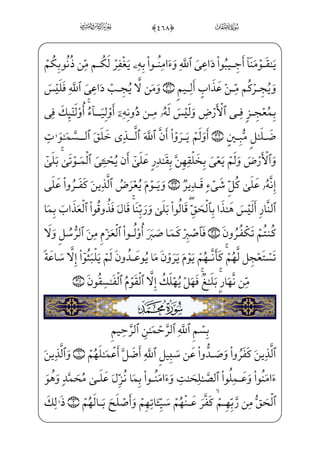 ﴿٤٦٨﴾
يَـٰقَوْمَنَآ أَجِيبُوا۟ دَاعِىَ ٱللَّهِ وَءَامِنُوا۟ بِهِۦ يَغْفِرْ لَكُم مِّن ذُنُوبِكُمْ
وَيُجِرْكُم مِّنْ عَذَابٍ أَلِيمٍ ٣١ وَمَن لَّا يُجِبْ دَاعِىَ ٱللَّهِ فَلَيْسَ
بِمُعْجِزٍ فِى ٱلْأَرْضِ وَلَيْسَ لَهُۥ مِن دُونِهِۦٓ أَوْلِيَآءُ ۚ أُو۟لَـٰٓئِكَ فِى
ضَلَـٰلٍ مُّبِينٍ ٣٢ أَوَلَمْ يَرَوْا۟ أَنَّ ٱللَّهَ ٱلَّذِى خَلَقَ ٱلسَّمَـٰوَٰتِ
وَٱلْأَرْضَ وَلَمْ يَعْىَ بِخَلْقِهِنَّ بِقَـٰدِرٍ عَلَىٰٓ أَن يُحْـِۧىَ ٱلْمَوْتَىٰ ۚ بَلَىٰٓ
إِنَّهُۥ عَلَىٰ كُلِّ شَىْءٍ قَدِيرٌ ٣٣ وَيَوْمَ يُعْرَضُ ٱلَّذِينَ كَفَرُوا۟ عَلَى
ٱلنَّارِ أَلَيْسَ هَـٰذَا بِٱلْحَقِّ ۖ قَالُوا۟ بَلَىٰ وَرَبِّنَا ۚ قَالَ فَذُوقُوا۟ ٱلْعَذَابَ بِمَا
كُنتُمْ تَكْفُرُونَ ٣٤ فَٱصْبِرْ كَمَا صَبَرَ أُو۟لُوا۟ ٱلْعَزْمِ مِنَ ٱلرُّسُلِ وَلَا
تَسْتَعْجِل لَّهُمْ ۚ كَأَنَّهُمْ يَوْمَ يَرَوْنَ مَا يُوعَدُونَ لَمْ يَلْبَثُوٓا۟ إِلَّا سَاعَةً
مِّن نَّهَارٍۭ ۚ بَلَـٰغٌ ۚ فَهَلْ يُهْلَكُ إِلَّا ٱلْقَوْمُ ٱلْفَـٰسِقُونَ ٣٥
سُورَةُ مُحَمَّدٍ
بِسْمِ ٱللَّهِ ٱلرَّحْمَـٰنِ ٱلرَّحِيمِ
ٱلَّذِينَ كَفَرُوا۟ وَصَدُّوا۟ عَن سَبِيلِ ٱللَّهِ أَضَلَّ أَعْمَـٰلَهُمْ ١ وَٱلَّذِينَ
ءَامَنُوا۟ وَعَمِلُوا۟ ٱلصَّـٰلِحَـٰتِ وَءَامَنُوا۟ بِمَا نُزِّلَ عَلَىٰ مُحَمَّدٍ وَهُوَ
ٱلْحَقُّ مِن رَّبِّهِمْ ۙ كَفَّرَ عَنْهُمْ سَيِّـَٔاتِهِمْ وَأَصْلَحَ بَالَهُمْ ٢ ذَٰلِكَ